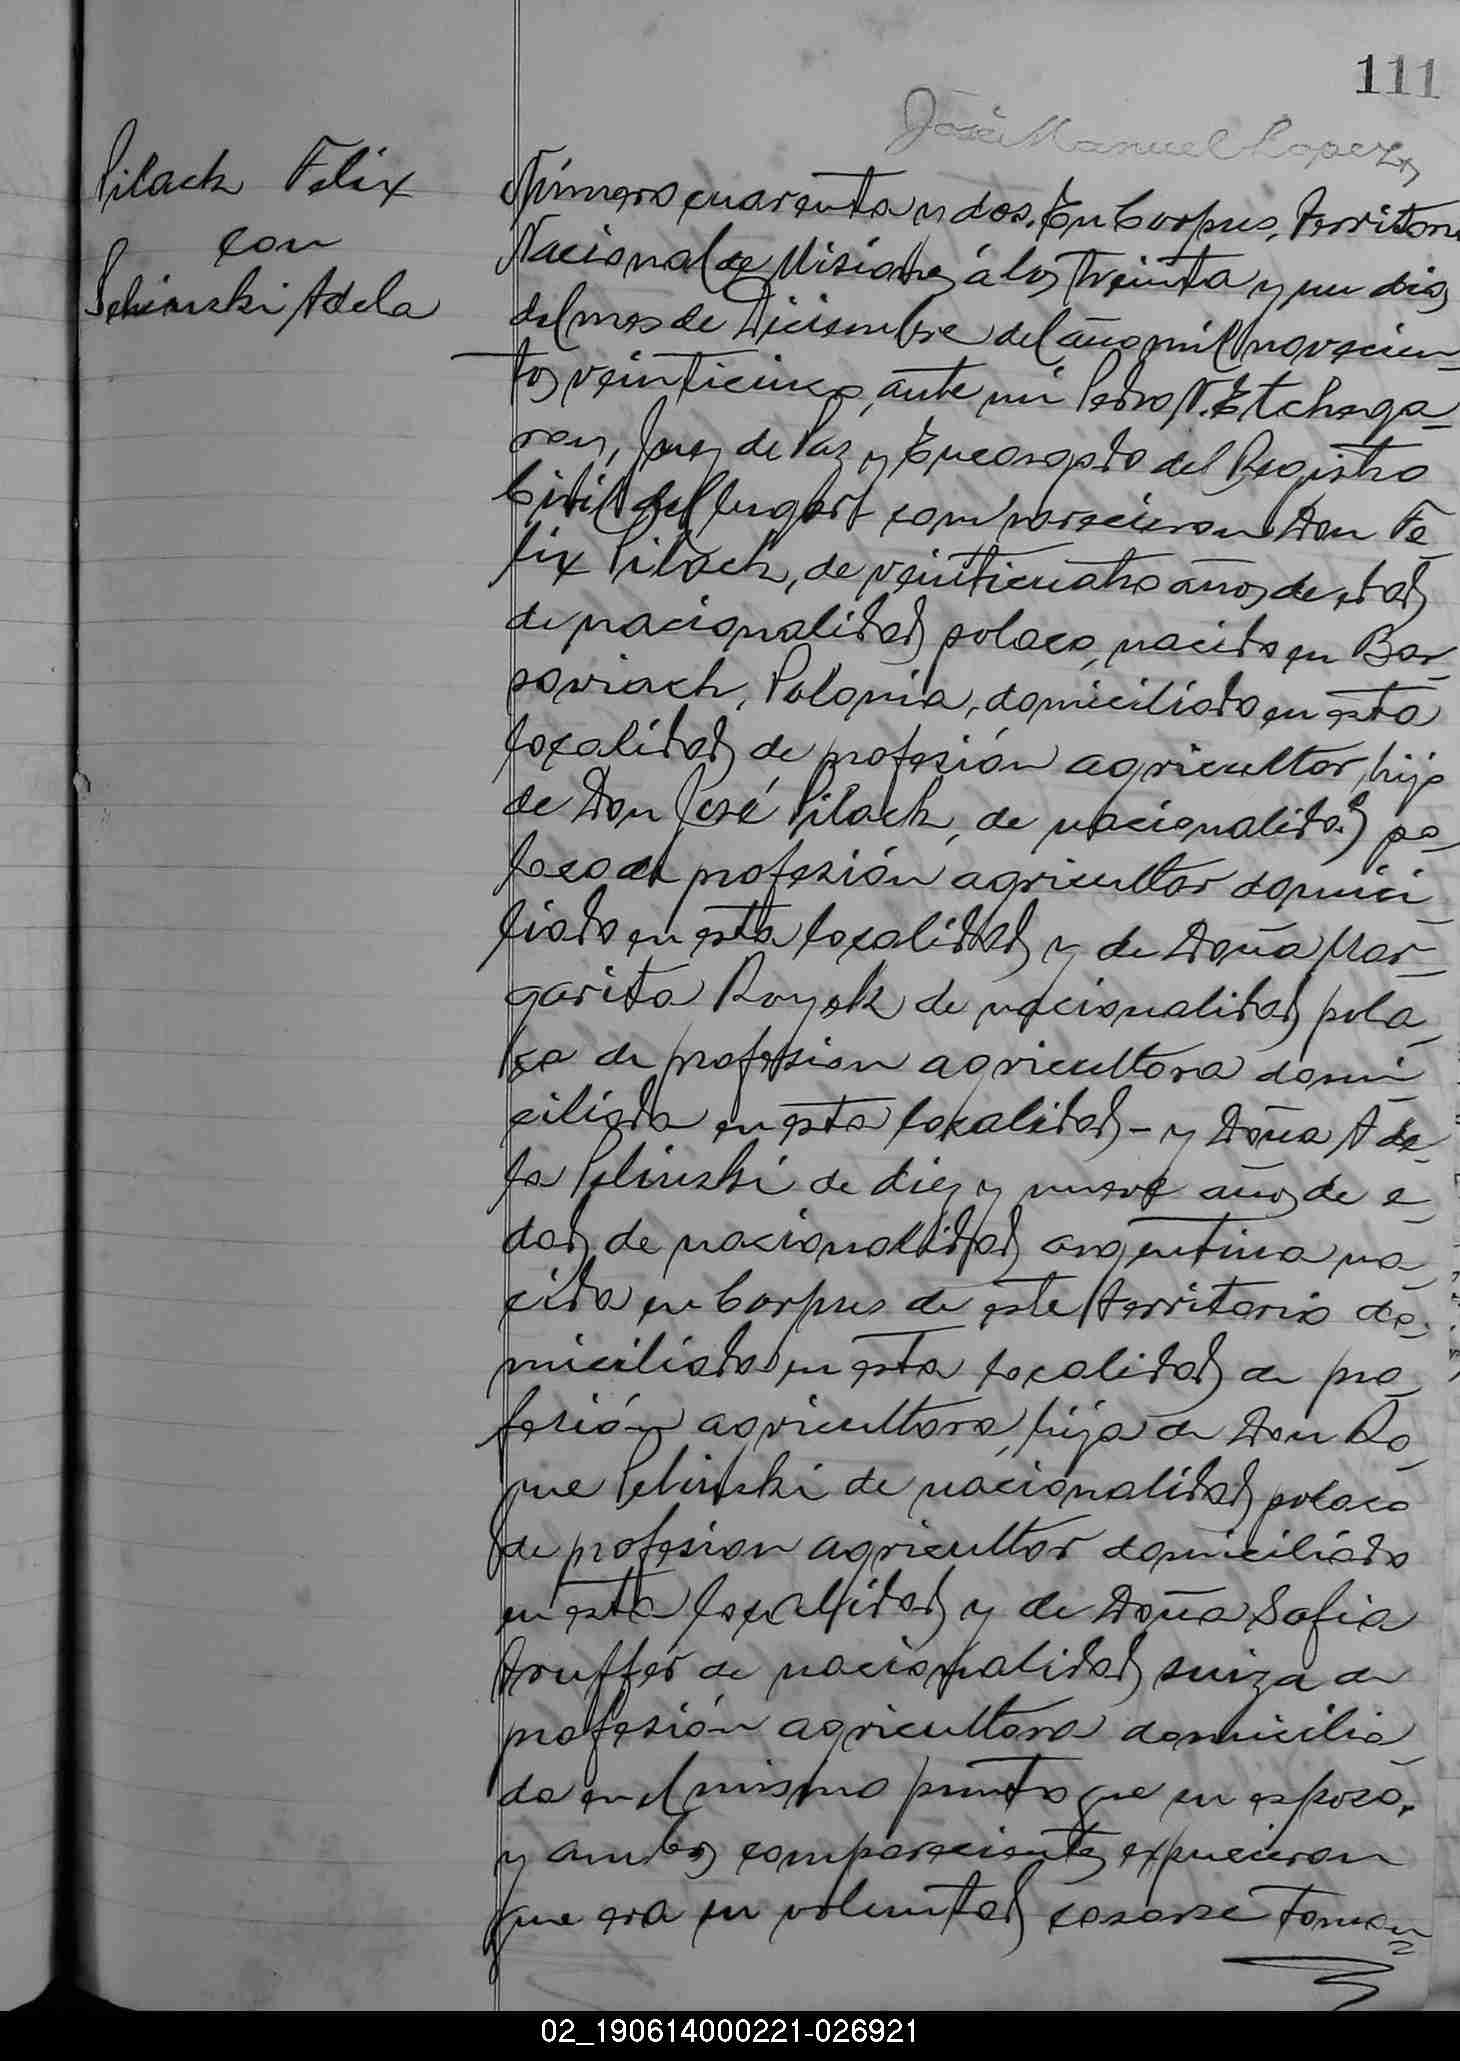 111
José Manuel Lopez
Pilach Felix
con
Pelinski Adela
Número cuarenta y dos. En Corpus, Territorio
Nacional de Misiones á los treinta y un dias
del mes de Diciembre del año mil novecien-
tos veinticinco, ante mi Pedro N. Etchega-
ray, Juez de Paz y Encargado del Registro
Civil del lugar comparecieron Don Fe-
lix Pilach, de veinticuatro años de edad
de nacionalidad polaca, nacido en Bor-
, Polonia, domiciliado en esta
localidad de profesión agricultor, hijo
de Don José Pilach, de nacionalidad po-
laca de profesión agricultor domici-
liado en esta localidad y de Doña Mar-
garita Royek de nacionalidad pola-
ca de profesion agricultora domi-
ciliada en esta localidad - y Doña Ade-
la Pelinski de diez y nueve años de e-
dad, de nacionalidad argentina na-
cida en Corpus de este territorio do-
miciliada en esta localidad de pro-
fesión agricultora, hija de Don Ro-
que Pelinski de nacionalidad polaca
de profesion agricultor domiciliado
en esta localidad y de Doña Sofia
Truffer de nacionalidad suiza de
profesión agricultora domicilia-
da en el mismo punto que su esposo.
y ambos comparecientes expusieron
que era su voluntad casarse toman-
02_190614000221-026921